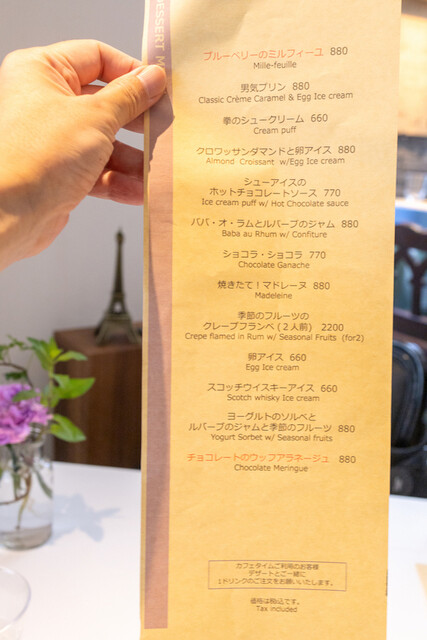 DESSERT M
ブルーベリーのミルフィーユ 880
Mille-feuille
男気プリン 880
Classic Crème Caramel & Egg Ice cream
拳のシュークリーム 660
Cream puff
クロワッサンダマンドと卵アイス 880
Almond Croissant w/Egg Ice cream
シューアイスの
ホットチョコレートソース 770
Ice cream puff w/ Hot Chocolate sauce
ババ・オ・ラムとルバーブのジャム 880
Baba au Rhum w/ Confiture
ショコラ・ショコラ 770
Chocolate Ganache
焼きたて！マドレーヌ 880
Madeleine
季節のフルーツの
クレープフランベ (２人前) 2200
Crepe flamed in Rum w/ Seasonal Fruits (for2)
卵アイス 660
Egg Ice cream
スコッチウイスキーアイス 660
Scotch whisky Ice cream
ヨーグルトのソルベと
ルバーブのジャムと季節のフルーツ 880
Yogurt Sorbet w/ Seasonal fruits
チョコレートのウッフアラネージュ 880
Chocolate Meringue
カフェタイムご利用のお客様
デザートとご一緒に
１ドリンクのご注文をお願いいたします。
価格は税込です。
Tax included